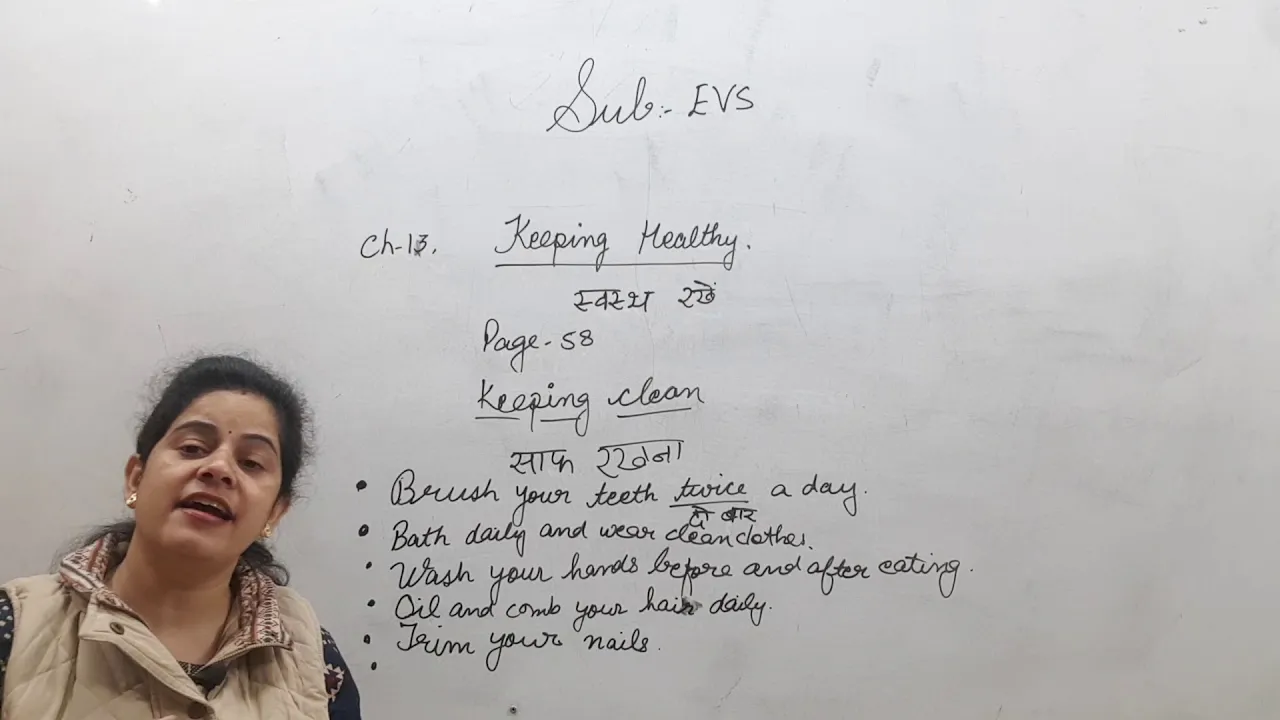 Sub:- EVS
Ch-13. Keeping Healthy.
स्वस्थ रखें
Page- 58
Keeping clean
साफ रखना
• Brush your teeth twice a day.
दो बार
• Bath daily and wear clean clothes.
• Wash your hands before and after eating.
• Oil and comb your hair daily.
• Trim your nails.
•